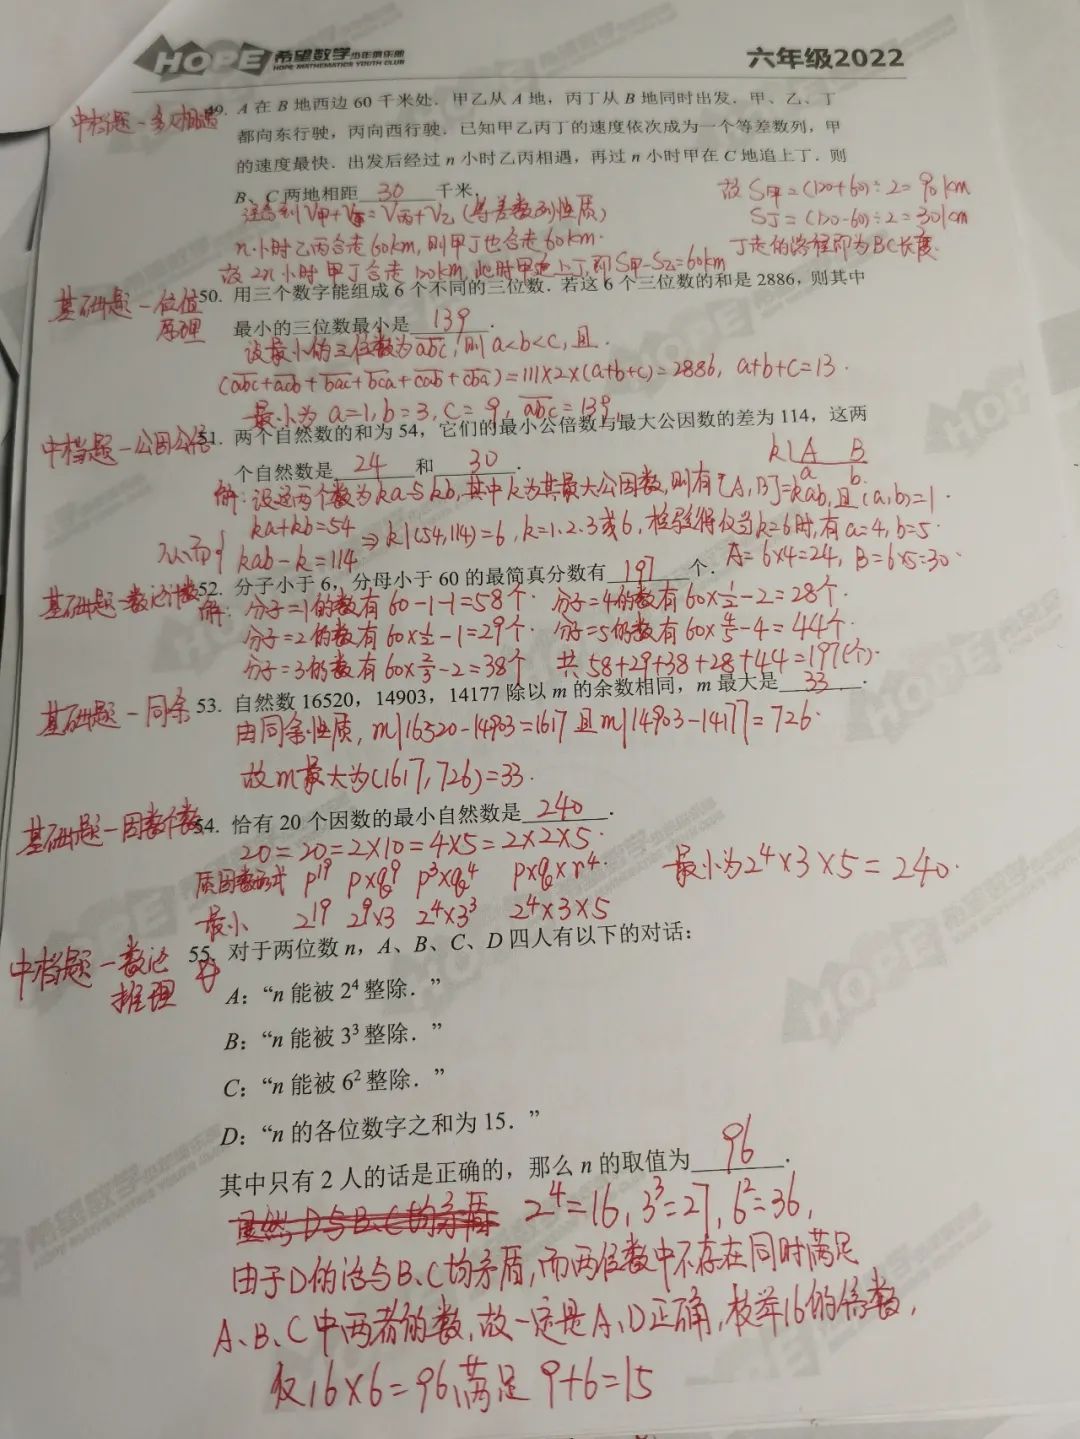 HOPE 希望数学 少年俱乐部
HOPE MATHEMATICS YOUTH CLUB
六年级2022
中档题-多人相遇
49. A 在 B 地西边 60 千米处．甲乙从 A 地，丙丁从 B 地同时出发．甲、乙、丁
都向东行驶，丙向西行驶．已知甲乙丙丁的速度依次成为一个等差数列，甲
的速度最快．出发后经过 n 小时乙丙相遇，再过 n 小时甲在 C 地追上丁．则
B、C 两地相距 30 千米．
注意到V甲+V丁=V丙+V乙 (等差数列性质)
n小时乙丙合走60km,则甲丁也合走60km.
故 2n小时 甲丁合走 120km,此时甲追上丁,即S甲-S乙=60km
故 S甲=(120+60)÷2=90km
S丁=(120-60)÷2=30km
丁走的路程即为BC长度.
基础题-位值
原理
50. 用三个数字能组成 6 个不同的三位数．若这 6 个三位数的和是 2886，则其中
最小的三位数最小是 139 ．
设最小的三位数为abc,则 a<b<c,且.
(abc+acb+bac+bca+cab+cba)=111×2×(a+b+c)=2886, a+b+c=13.
最小为 a=1,b=3,c=9, abc=139.
中档题-公因公倍
51. 两个自然数的和为 54，它们的最小公倍数与最大公因数的差为 114，这两
个自然数是 24 和 30 ．
k|A B
a b
解:设这两个数为ka与kb,其中k为其最大公因数,则有[A,B]=kab,且(a,b)=1.
从而{ka+kb=54
kab-k=114
⇒k|(54,114)=6,k=1.2.3或6,检验得仅当k=6时,有a=4,b=5.
A=6×4=24, B=6×5=30.
基础题-数论计数
52. 分子小于 6，分母小于 60 的最简真分数有 197 个．
解: 分子=1的数有 60-1-1=58个. 分子=4的数有60×1/2-2=28个.
分子=2的数有 60×1/2-1=29个. 分子=5的数有60×4/5-4=44个.
分子=3的数有60×2/3-2=38个 共58+29+38+28+44=197(个).
基础题-同余
53. 自然数 16520，14903，14177 除以 m 的余数相同，m 最大是 33 ．
由同余性质, m|16520-14903=1617 且 m|14903-14177=726.
故m最大为(1617,726)=33.
基础题-因数个数
54. 恰有 20 个因数的最小自然数是 240 ．
20=20=2×10=4×5=2×2×5.
质因数形式 p¹⁹ p×q⁹ p³×q⁴ p×q×r⁴.
最小 2¹⁹ 2⁹×3 2⁴×3³ 2⁴×3×5
最小为2⁴×3×5=240.
中档题-数论
推理
55. 对于两位数 n，A、B、C、D 四人有以下的对话：
A：“n 能被 2⁴ 整除．”
B：“n 能被 3³ 整除．”
C：“n 能被 6² 整除．”
D：“n 的各位数字之和为 15．”
其中只有 2 人的话是正确的，那么 n 的取值为 96 ．
显然 D与B、C均矛盾 2⁴=16, 3³=27, 6²=36,
由于D的话与B、C均矛盾,而两位数中不存在同时满足
A、B、C中两者的数,故一定是A、D正确,枚举16的倍数,
仅16×6=96满足 9+6=15